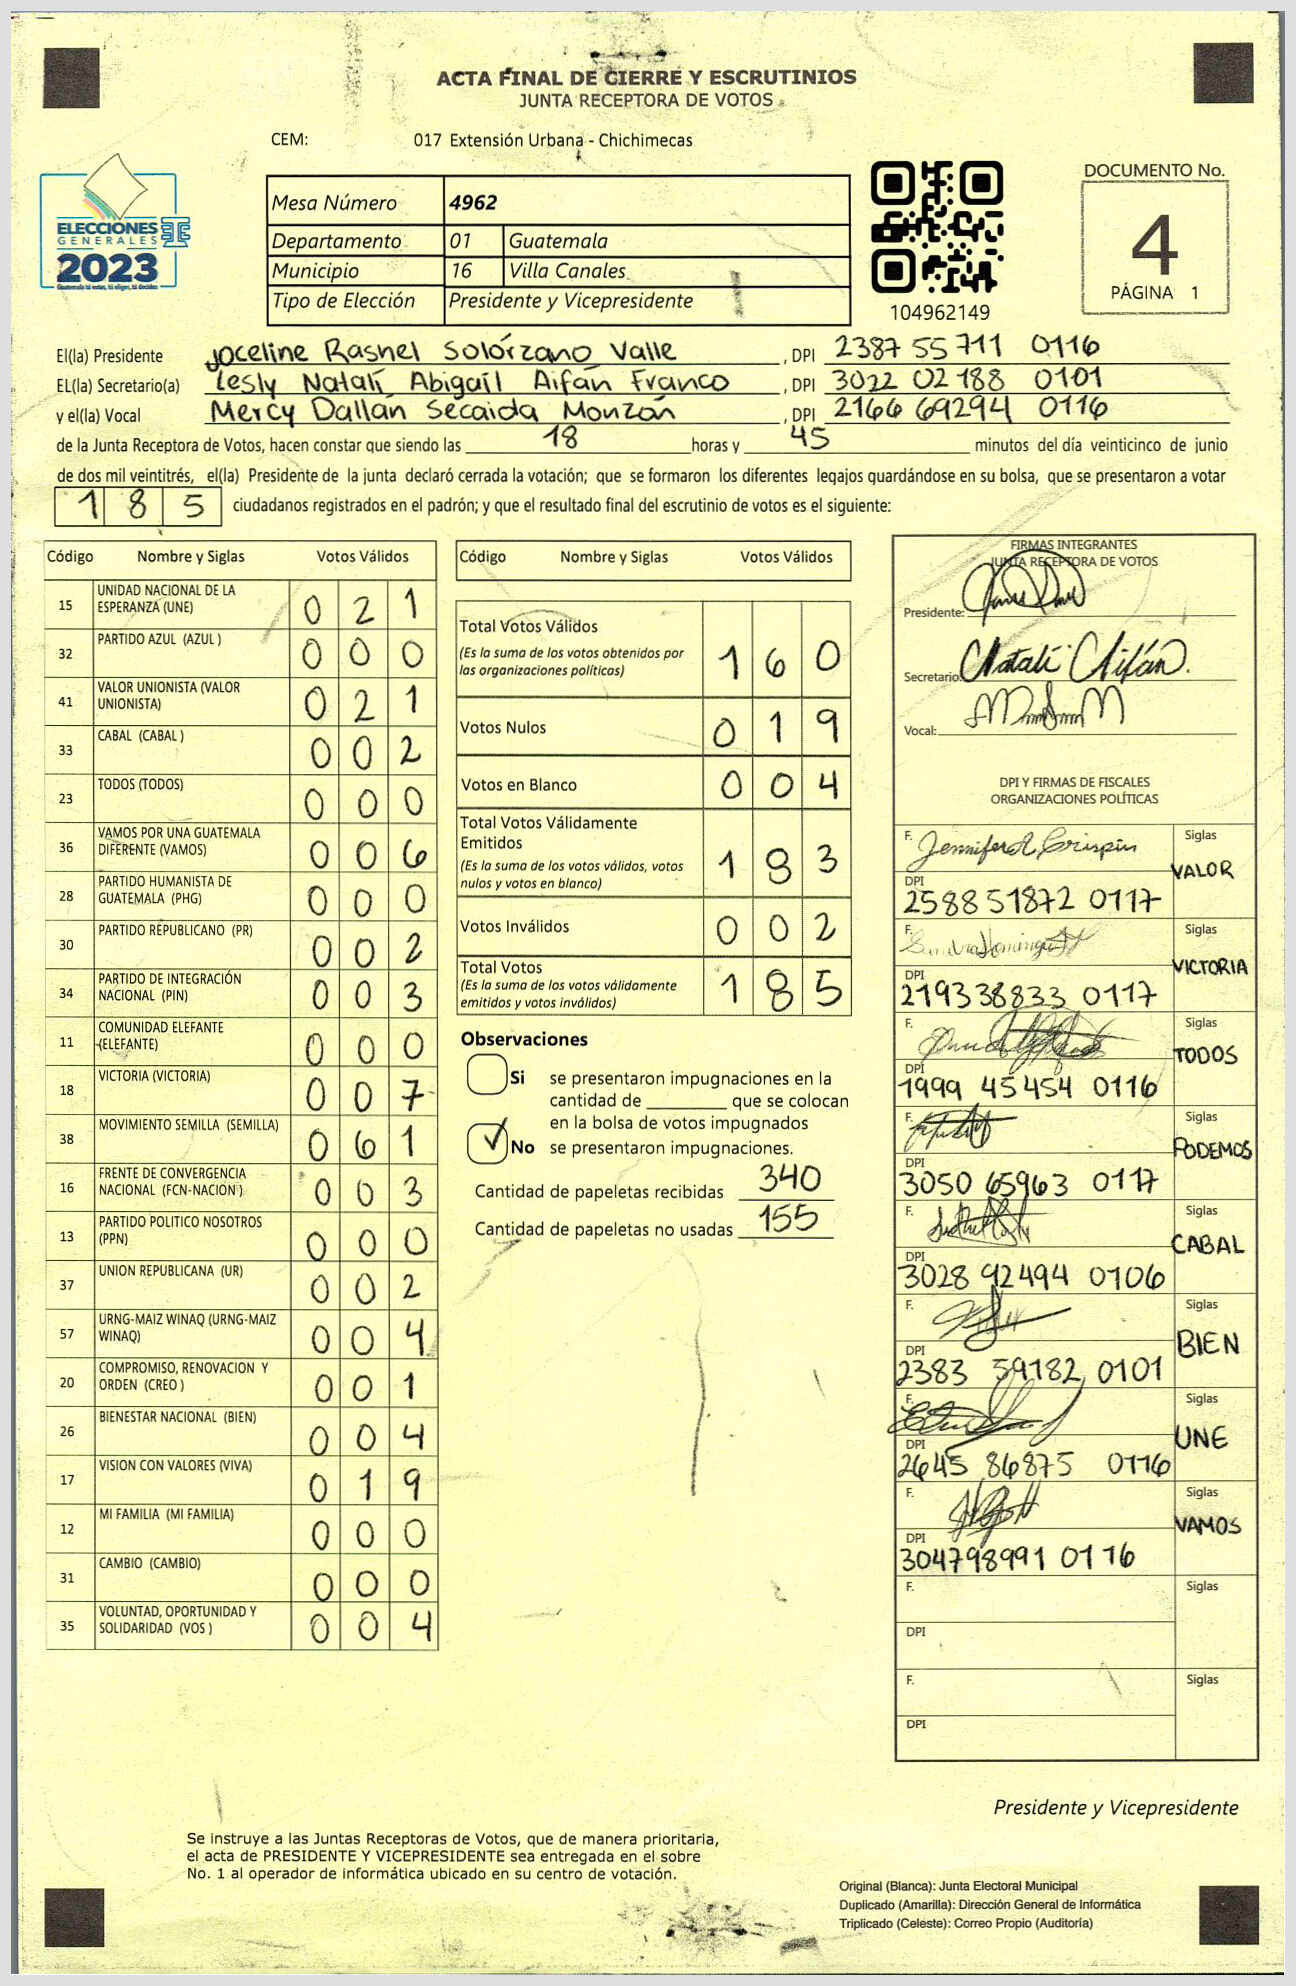 ACTA FINAL DE CIERRE Y ESCRUTINIOS
JUNTA RECEPTORA DE VOTOS
CEM: 017 Extensión Urbana - Chichimecas
ELECCIONES
GENERALES
2023
Guatemala tú votas, tú eliges, tú decides
Mesa Número 4962
Departamento 01 Guatemala
Municipio 16 Villa Canales
Tipo de Elección Presidente y Vicepresidente
104962149
DOCUMENTO No.
4
PÁGINA 1
El(la) Presidente Joceline Rashel Solórzano Valle , DPI 2387 55711 0116
EL(la) Secretario(a) Lesly Natalí Abigaíl Aifán Franco , DPI 3022 02188 0101
y el(la) Vocal Mercy Dallán Secaida Monzón , DPI 2166 69294 0116
de la Junta Receptora de Votos, hacen constar que siendo las 18 horas y 45 minutos del día veinticinco de junio
de dos mil veintitrés, el(la) Presidente de la junta declaró cerrada la votación; que se formaron los diferentes legajos guardándose en su bolsa, que se presentaron a votar
185 ciudadanos registrados en el padrón; y que el resultado final del escrutinio de votos es el siguiente:
Código Nombre y Siglas Votos Válidos
15 UNIDAD NACIONAL DE LA ESPERANZA (UNE) 0 2 1
32 PARTIDO AZUL (AZUL ) 0 0 0
41 VALOR UNIONISTA (VALOR UNIONISTA) 0 2 1
33 CABAL (CABAL ) 0 0 2
23 TODOS (TODOS) 0 0 0
36 VAMOS POR UNA GUATEMALA DIFERENTE (VAMOS) 0 0 6
28 PARTIDO HUMANISTA DE GUATEMALA (PHG) 0 0 0
30 PARTIDO REPUBLICANO (PR) 0 0 2
34 PARTIDO DE INTEGRACIÓN NACIONAL (PIN) 0 0 3
11 COMUNIDAD ELEFANTE (ELEFANTE) 0 0 0
18 VICTORIA (VICTORIA) 0 0 7
38 MOVIMIENTO SEMILLA (SEMILLA) 0 6 1
16 FRENTE DE CONVERGENCIA NACIONAL (FCN-NACION ) 0 0 3
13 PARTIDO POLITICO NOSOTROS (PPN) 0 0 0
37 UNION REPUBLICANA (UR) 0 0 2
57 URNG-MAIZ WINAQ (URNG-MAIZ WINAQ) 0 0 4
20 COMPROMISO, RENOVACION Y ORDEN (CREO ) 0 0 1
26 BIENESTAR NACIONAL (BIEN) 0 0 4
17 VISION CON VALORES (VIVA) 0 1 9
12 MI FAMILIA (MI FAMILIA) 0 0 0
31 CAMBIO (CAMBIO) 0 0 0
35 VOLUNTAD, OPORTUNIDAD Y SOLIDARIDAD (VOS ) 0 0 4
Código Nombre y Siglas Votos Válidos
Total Votos Válidos 1 6 0
(Es la suma de los votos obtenidos por
las organizaciones políticas)
Votos Nulos 0 1 9
Votos en Blanco 0 0 4
Total Votos Válidamente
Emitidos 1 8 3
(Es la suma de los votos válidos, votos
nulos y votos en blanco)
Votos Inválidos 0 0 2
Total Votos 1 8 5
(Es la suma de los votos válidamente
emitidos y votos inválidos)
Observaciones
Si se presentaron impugnaciones en la
cantidad de ________ que se colocan
en la bolsa de votos impugnados
✓ No se presentaron impugnaciones.
Cantidad de papeletas recibidas 340
Cantidad de papeletas no usadas 155
FIRMAS INTEGRANTES
JUNTA RECEPTORA DE VOTOS
Presidente:
Secretario: Natalí Aifán.
Vocal:
DPI Y FIRMAS DE FISCALES
ORGANIZACIONES POLÍTICAS
F. Jennifer Crispin Siglas VALOR
DPI 2588 51872 0117
F. Siglas VICTORIA
DPI 219338833 0117
F. Siglas TODOS
DPI 1999 45454 0116
F. Siglas PODEMOS
DPI 3050 65963 0117
F. Siglas CABAL
DPI 3028 92494 0106
F. Siglas BIEN
DPI 2383 59182 0101
F. Siglas UNE
DPI 2645 86875 0116
F. Siglas VAMOS
DPI 304798991 0116
F. Siglas
DPI
F. Siglas
DPI
Presidente y Vicepresidente
Se instruye a las Juntas Receptoras de Votos, que de manera prioritaria,
el acta de PRESIDENTE Y VICEPRESIDENTE sea entregada en el sobre
No. 1 al operador de informática ubicado en su centro de votación.
Original (Blanca): Junta Electoral Municipal
Duplicado (Amarilla): Dirección General de Informática
Triplicado (Celeste): Correo Propio (Auditoría)